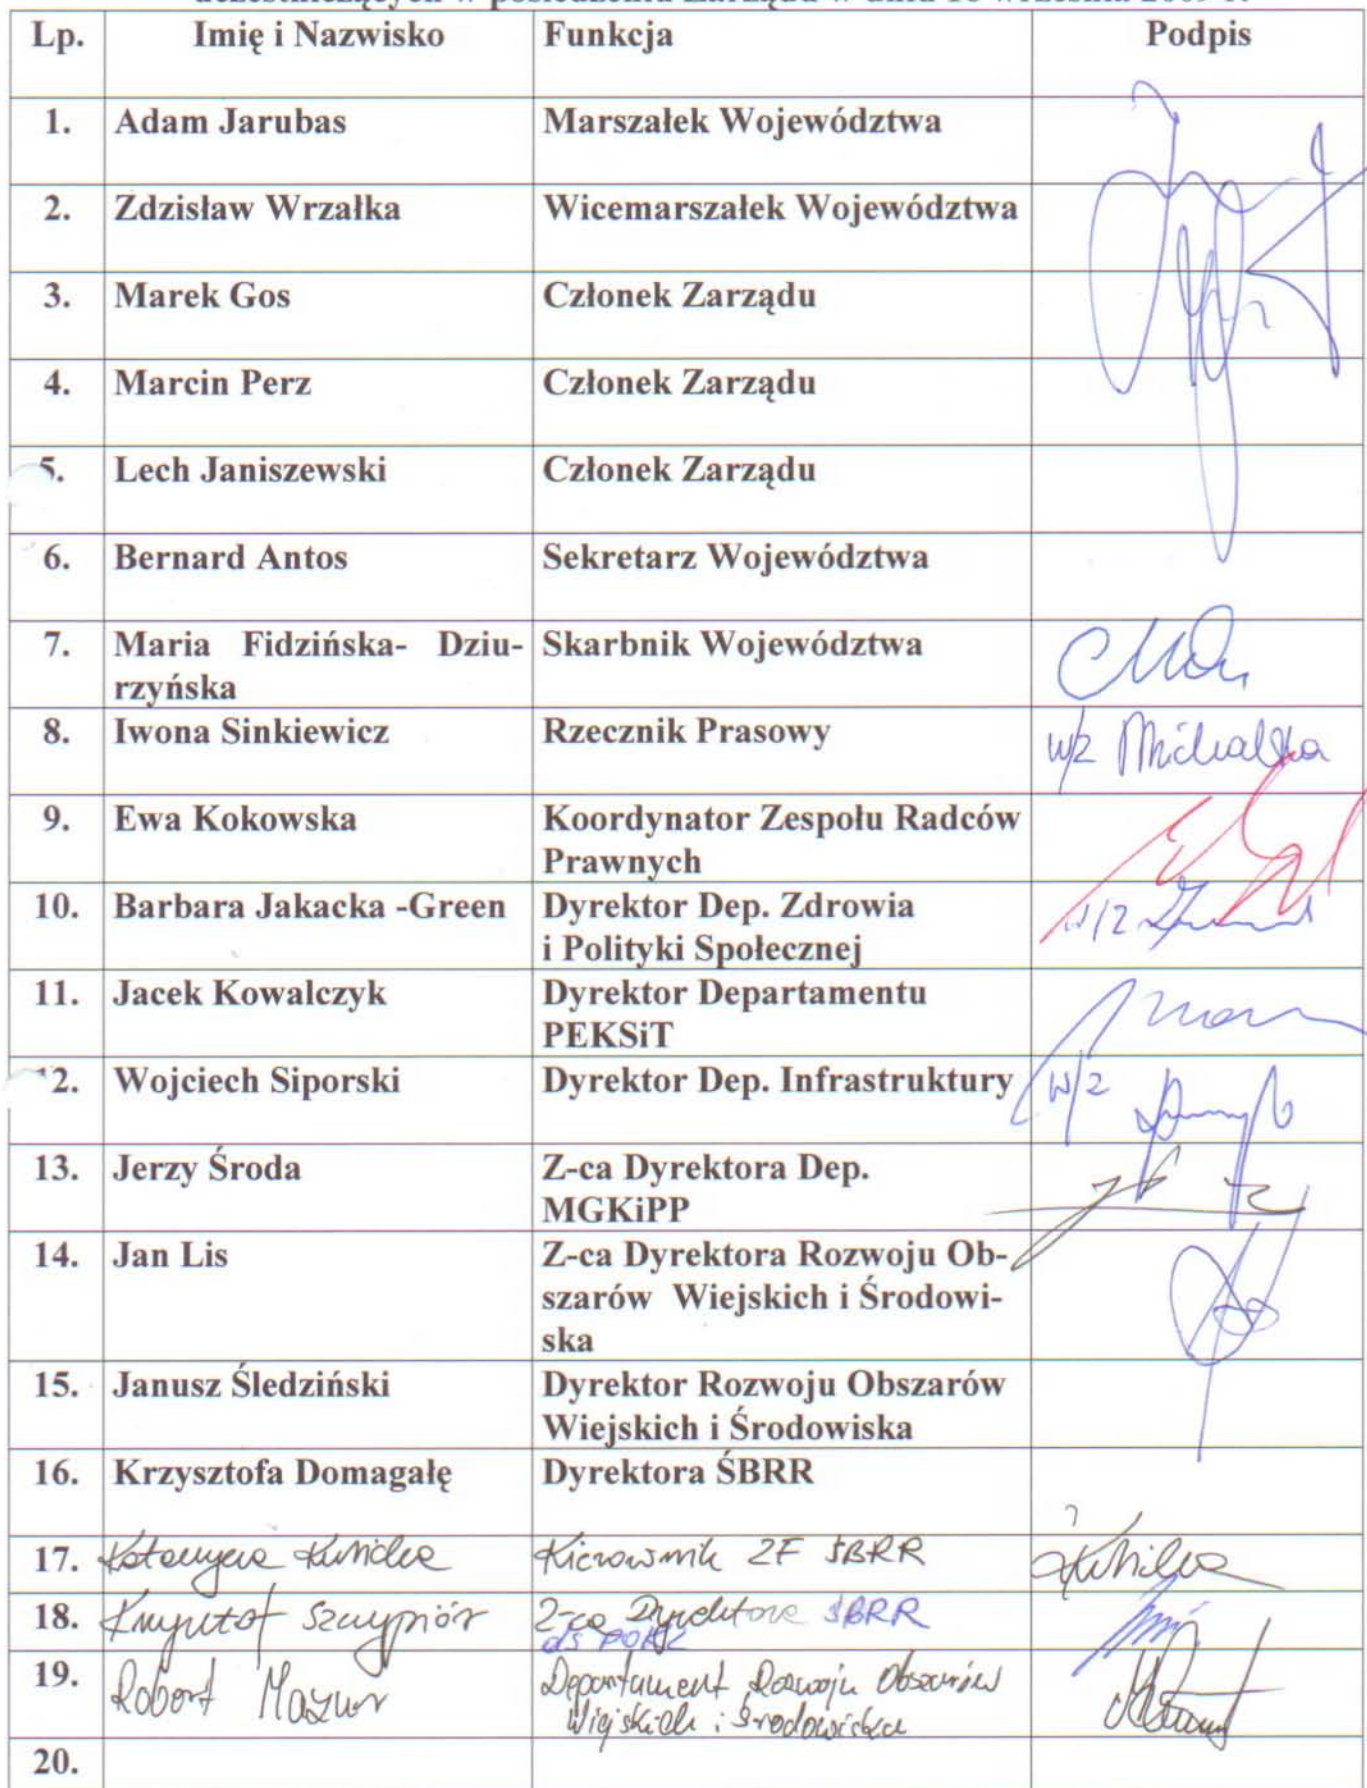 uczestniczących w posiedzeniu Zarządu w dniu
Lp. Imię i Nazwisko Funkcja Podpis
1. Adam Jarubas Marszałek Województwa
2. Zdzisław Wrzałka Wicemarszałek Województwa
3. Marek Gos Członek Zarządu
4. Marcin Perz Członek Zarządu
5. Lech Janiszewski Członek Zarządu
6. Bernard Antos Sekretarz Województwa
7. Maria Fidzińska- Dziu- Skarbnik Województwa
rzyńska
8. Iwona Sinkiewicz Rzecznik Prasowy w/z Michalska
9. Ewa Kokowska Koordynator Zespołu Radców
Prawnych
10. Barbara Jakacka -Green Dyrektor Dep. Zdrowia
i Polityki Społecznej w/z
11. Jacek Kowalczyk Dyrektor Departamentu
PEKSiT
12. Wojciech Siporski Dyrektor Dep. Infrastruktury w/z
13. Jerzy Środa Z-ca Dyrektora Dep.
MGKiPP
14. Jan Lis Z-ca Dyrektora Rozwoju Ob-
szarów Wiejskich i Środowi-
ska
15. Janusz Śledziński Dyrektor Rozwoju Obszarów
Wiejskich i Środowiska
16. Krzysztofa Domagałę Dyrektora ŚBRR
17. Katarzyna Kubicka Kierownik ZF ŚBRR
18. Krzysztof Szczypiór Z-ca Dyrektora ŚBRR
ds POKL
19. Robert Mazur Departament Rozwoju Obszarów
Wiejskich i Środowiska
20.